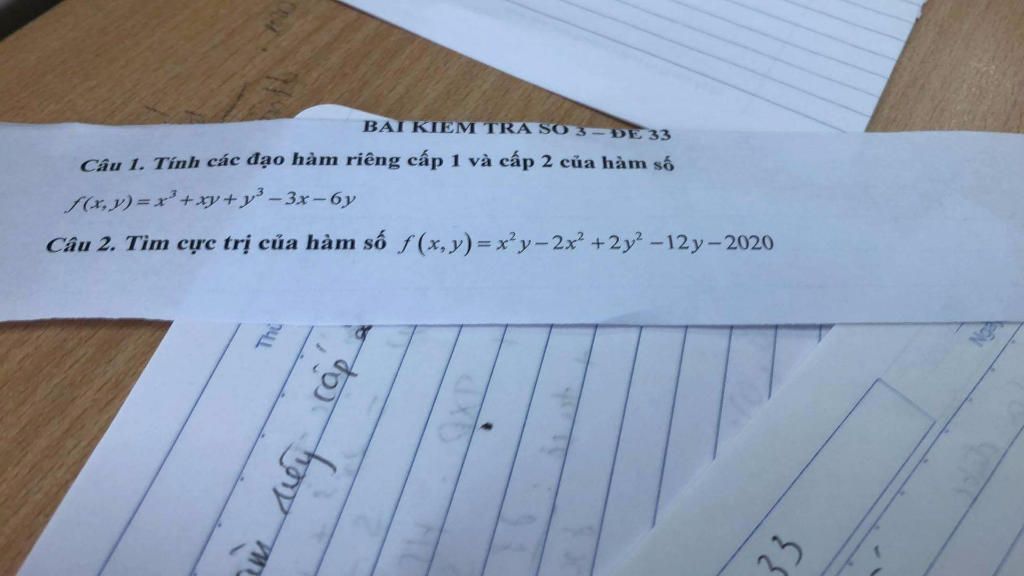 BÀI KIỂM TRA SỐ 3 – ĐỀ 33
Câu 1. Tính các đạo hàm riêng cấp 1 và cấp 2 của hàm số
f(x,y)=x³+xy+y³−3x−6y
Câu 2. Tìm cực trị của hàm số f(x,y)=x²y−2x²+2y²−12y−2020
Thứ
riêng cấp 2
Ngày
33